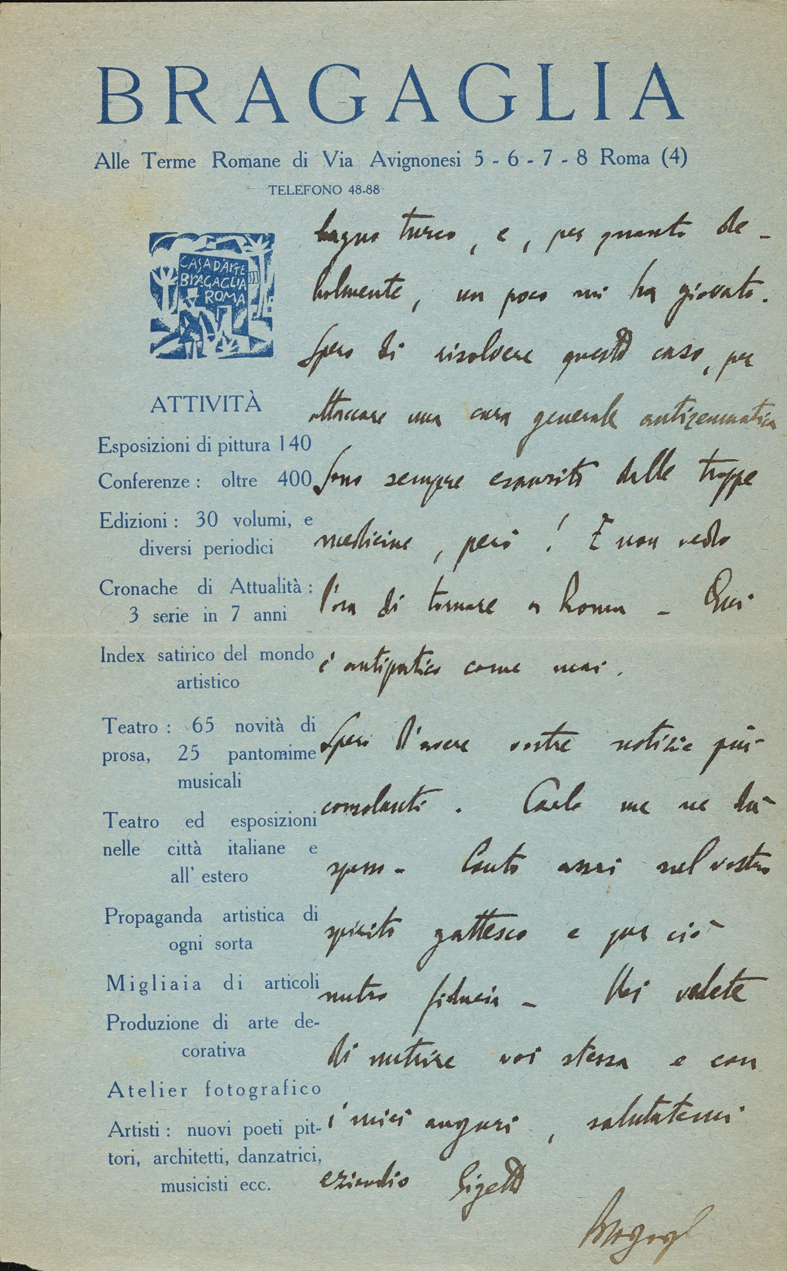 BRAGAGLIA
Alle Terme Romane di Via Avignonesi 5 - 6 - 7 - 8 Roma (4)
TELEFONO 48-88
CASA D'ARTE
BRAGAGLIA
ROMA
ATTIVITÀ
Esposizioni di pittura 140
Conferenze : oltre 400
Edizioni : 30 volumi, e
diversi periodici
Cronache di Attualità :
3 serie in 7 anni
Index satirico del mondo
artistico
Teatro : 65 novità di
prosa, 25 pantomime
musicali
Teatro ed esposizioni
nelle città italiane e
all' estero
Propaganda artistica di
ogni sorta
Migliaia di articoli
Produzione di arte de-
corativa
Atelier fotografico
Artisti : nuovi poeti pit-
tori, architetti, danzatrici,
musicisti ecc.
bagno turco, e, per quanto de-
bolmente, un poco mi ha giovato.
Spero di risolvere questo caso, per
attaccare una cura generale antireumatica
Sono sempre esaurito dalle troppe
medicine, però! E non vedo
l'ora di tornare a Roma - Qui
è antipatico come mai.
Spero d'avere vostre notizie più
consolanti. Carlo me ne dà
spesso - Conto assai nel vostro
spirito gattesco e per ciò
nutro fiducia - Voi vedete
di nutrire voi stessa e con
i miei auguri, salutatemi
eziandio Gigetto
Bragagl